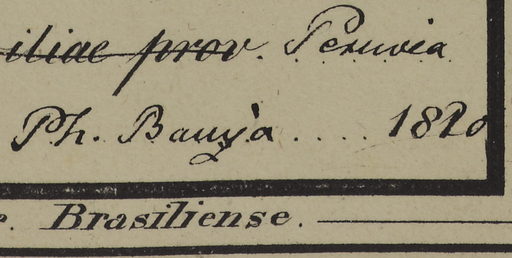 iliae prov. Peruvia
Ph. Banyà ..... 1820
Brasiliense.